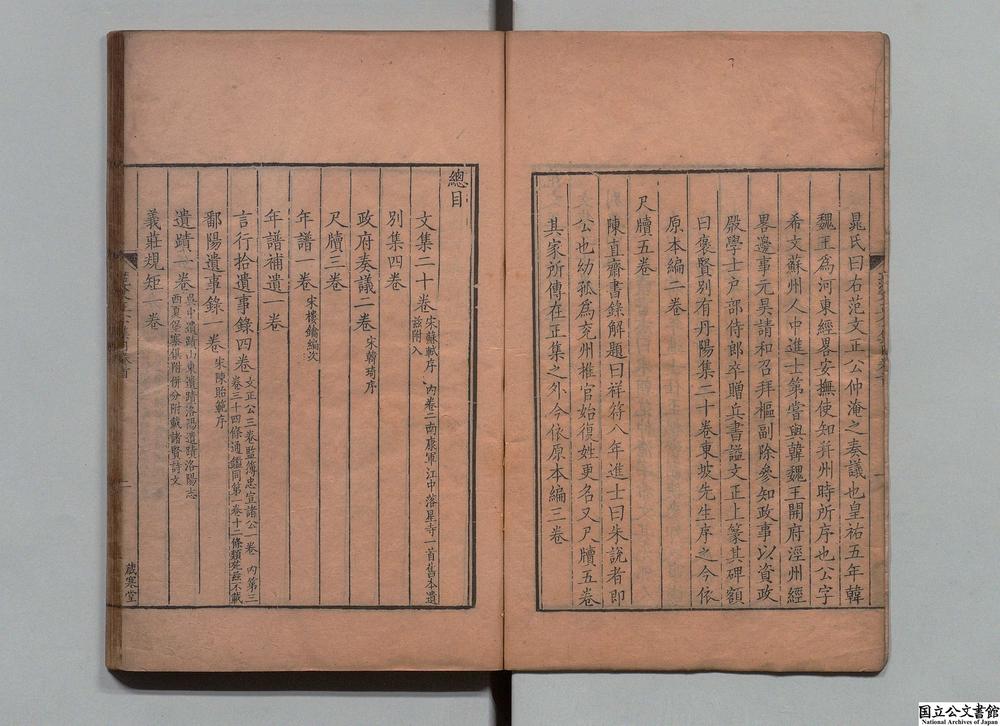 晁氏曰右范文正公仲淹之奏議也皇祐五年韓
魏王為河東經畧安撫使知并州時所序也公字
希文蘇州人中進士第嘗與韓魏王開府涇州經
畧邊事元昊請和召拜樞副除參知政事以資政
殿學士戸部侍郎卒贈兵書謚文正上篆其碑額
曰褒賢別有丹陽集二十卷東坡先生序之今依
原本編二卷
尺牘五卷
陳直齋書錄解題曰祥符八年進士曰朱說者即
公也幼孤為兖州推官始復姓更名又尺牘五卷
其家所傳在正集之外今依原本編三卷
總目
文集二十卷 宋蘇軾序 內卷二南康軍江中落星寺一首舊本遺
茲附入
別集四卷
政府奏議二卷 宋韓琦序
尺牘三卷
年譜一卷 宋樓鑰編次
年譜補遺一卷
言行拾遺事錄四卷 文正公三卷監簿忠宣諸公一卷 內第三
卷三十四條通鑑同第一卷十二條類苑茲不載
鄱陽遺事錄一卷 宋陳貽範序
遺蹟一卷 吳中遺蹟山東遺蹟洛陽遺蹟洛陽志
西夏堡寨俱附併分附載諸賢詩文
義莊規矩一卷
一
歲寒堂
国立公文書館
National Archives of Japan